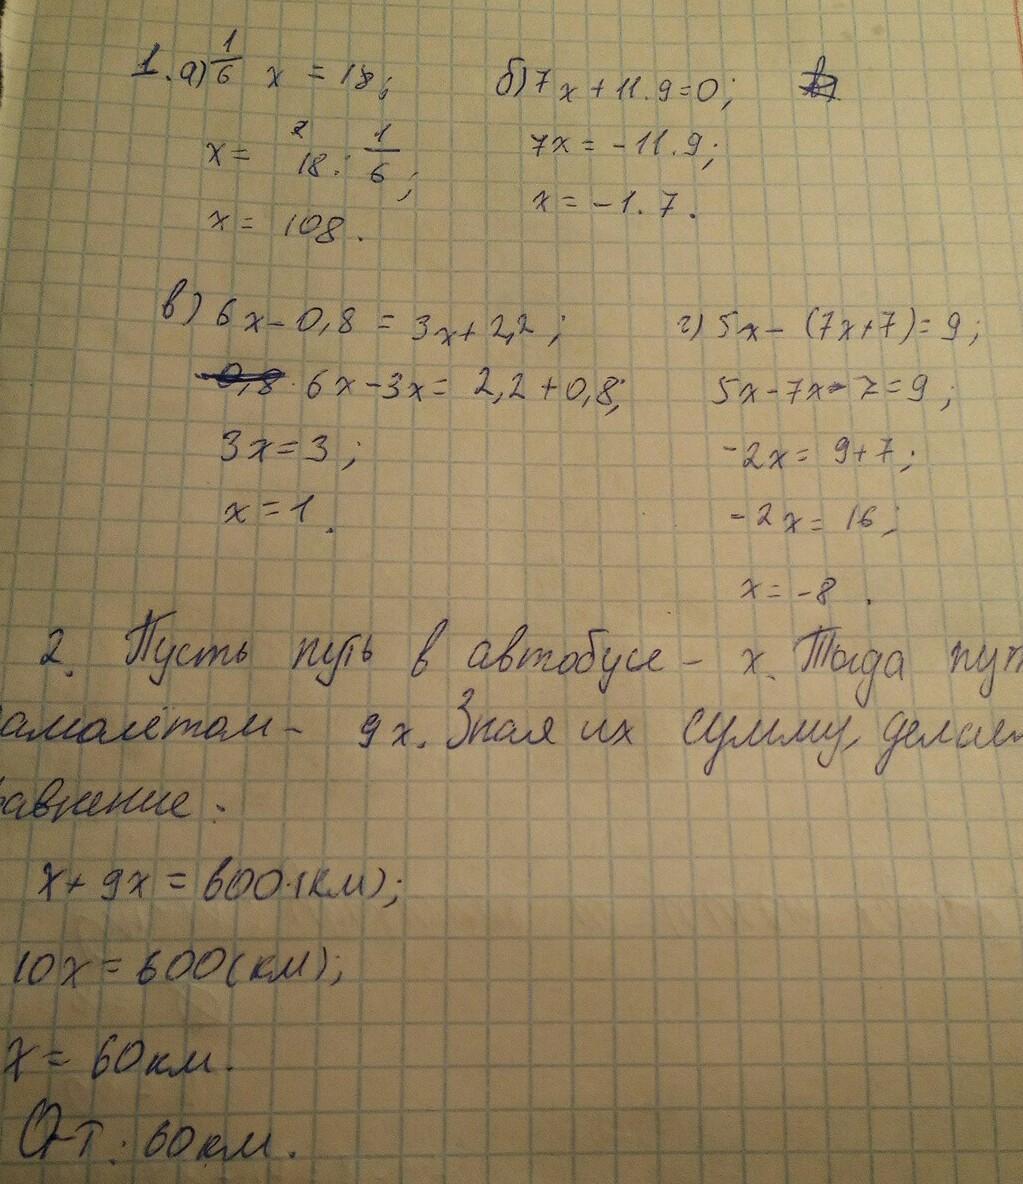 1. а) 1/6 x = 18; б) 7x + 11.9 = 0;
x = 18 : 1/6; 7x = -11.9;
x = 108. x = -1.7.
в) 6x - 0,8 = 3x + 2,2; г) 5x - (7x + 7) = 9;
0,8 6x - 3x = 2,2 + 0,8; 5x - 7x - 7 = 9;
3x = 3; -2x = 9 + 7;
x = 1. -2x = 16;
x = -8.
2. Пусть путь в автобусе - x. Тогда пут
амолётом - 9x. Зная их сумму, делаем
авнение:
x + 9x = 600 (км);
10x = 600 (км);
x = 60 км.
От: 60 км.